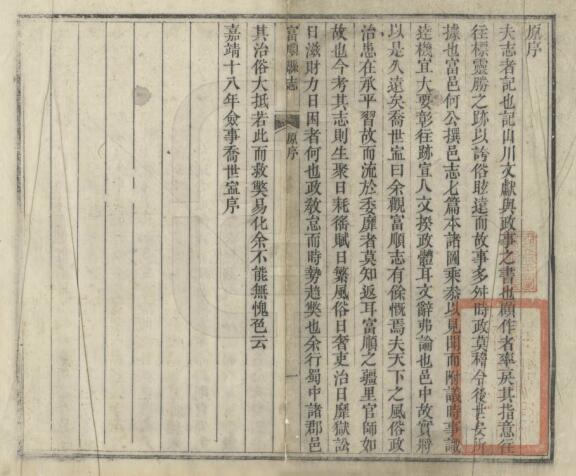 原序
夫志者記也記山川文獻與政事之書也顧作者率戾其指意往
往標靈勝之跡以誇俗眩遠而故事多舛時政莫稽令後世安所
據也富邑何公撰邑志七篇本諸圖乘叅以見聞而附議時事識
達機宜大要彰往跡宣人文揆政體耳文辭弗論也邑中故實將
以是久遠矣喬世寍曰余觀富順志有餘慨焉夫天下之風俗政
治患在承平習故而流於委靡者莫知返耳富順之疆里官師如
故也今考其志則生聚日耗徭賦日繁風俗日奢吏治日靡獄訟
日滋財力日困者何也政敎怠而時勢趋獘也余行蜀中諸郡邑
富順縣志
原序
一
其治俗大抵若此而救獘易化余不能無愧色云
嘉靖十八年僉事喬世寍序